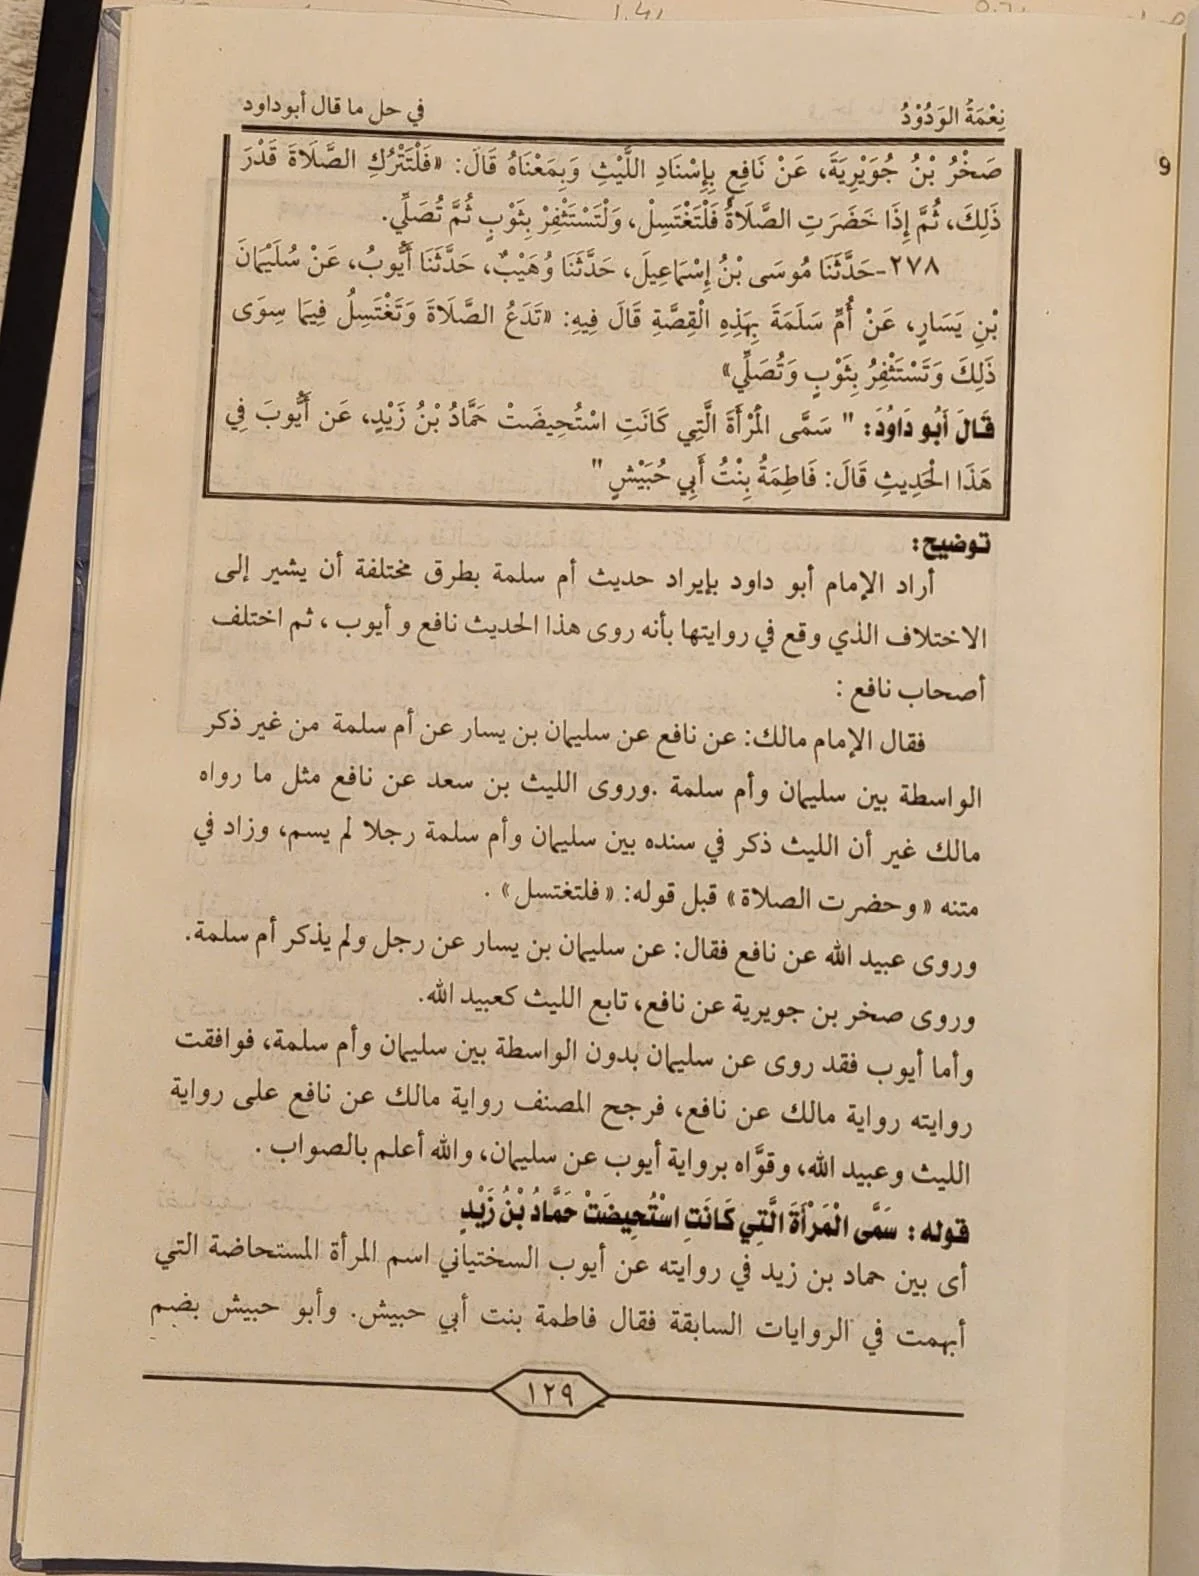 نِعْمَةُ الوَدُوْدُ
في حل ما قال أبوداود
صَخْرُ بْنُ جُوَيْرِيَةَ، عَنْ نَافِعٍ بِإِسْنَادِ اللَّيْثِ وَبِمَعْنَاهُ قَالَ: «فَلْتَتْرُكِ الصَّلَاةَ قَدْرَ
ذَلِكَ، ثُمَّ إِذَا حَضَرَتِ الصَّلَاةُ فَلْتَغْتَسِلْ، وَلْتَسْتَثْفِرْ بِثَوْبٍ ثُمَّ تُصَلِّي.
٢٧٨-حَدَّثَنَا مُوسَى بْنُ إِسْمَاعِيلَ، حَدَّثَنَا وُهَيْبٌ، حَدَّثَنَا أَيُّوبُ، عَنْ سُلَيْمَانَ
بْنِ يَسَارٍ، عَنْ أُمِّ سَلَمَةَ بِهَذِهِ الْقِصَّةِ قَالَ فِيهِ: «تَدَعُ الصَّلَاةَ وَتَغْتَسِلُ فِيمَا سِوَى
ذَلِكَ وَتَسْتَثْفِرُ بِثَوْبٍ وَتُصَلِّي»
قَالَ أَبُو دَاوُدَ: " سَمَّى الْمَرْأَةَ الَّتِي كَانَتِ اسْتُحِيضَتْ حَمَّادُ بْنُ زَيْدٍ، عَن أَيُّوبَ فِي
هَذَا الْحَدِيثِ قَالَ: فَاطِمَةُ بِنْتُ أَبِي حُبَيْشٍ "
توضيح:
أراد الإمام أبو داود بإيراد حديث أم سلمة بطرق مختلفة أن يشير إلى
الاختلاف الذي وقع في روايتها بأنه روى هذا الحديث نافع و أيوب ، ثم اختلف
أصحاب نافع :
فقال الإمام مالك: عن نافع عن سليمان بن يسار عن أم سلمة من غير ذكر
الواسطة بين سليمان وأم سلمة .وروى الليث بن سعد عن نافع مثل ما رواه
مالك غير أن الليث ذكر في سنده بين سليمان وأم سلمة رجلا لم يسم، وزاد في
متنه «وحضرت الصلاة» قبل قوله: «فلتغتسل» .
وروى عبيد الله عن نافع فقال: عن سليمان بن يسار عن رجل ولم يذكر أم سلمة.
وروى صخر بن جويرية عن نافع، تابع الليث كعبيد الله.
وأما أيوب فقد روى عن سليمان بدون الواسطة بين سليمان وأم سلمة، فوافقت
روايته رواية مالك عن نافع، فرجح المصنف رواية مالك عن نافع على رواية
الليث وعبيد الله، وقوَّاه برواية أيوب عن سليمان، والله أعلم بالصواب .
قوله: سَمَّى الْمَرْأَةَ الَّتِي كَانَتِ اسْتُحِيضَتْ حَمَّادُ بْنُ زَيْدٍ
أى بين حماد بن زيد في روايته عن أيوب السختياني اسم المرأة المستحاضة التي
أبهمت في الروايات السابقة فقال فاطمة بنت أبي حبيش. وأبو حبيش بضم
١٢٩